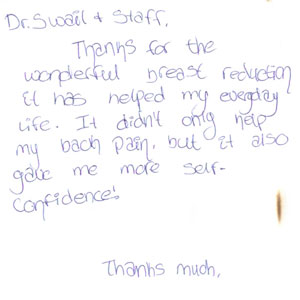 Dr. Swail & Staff,
Thanks for the
wonderful breast reduction
it has helped my everyday
life. It didn't only help
my back pain, but it also
gave me more self-
confidence!
Thanks much,